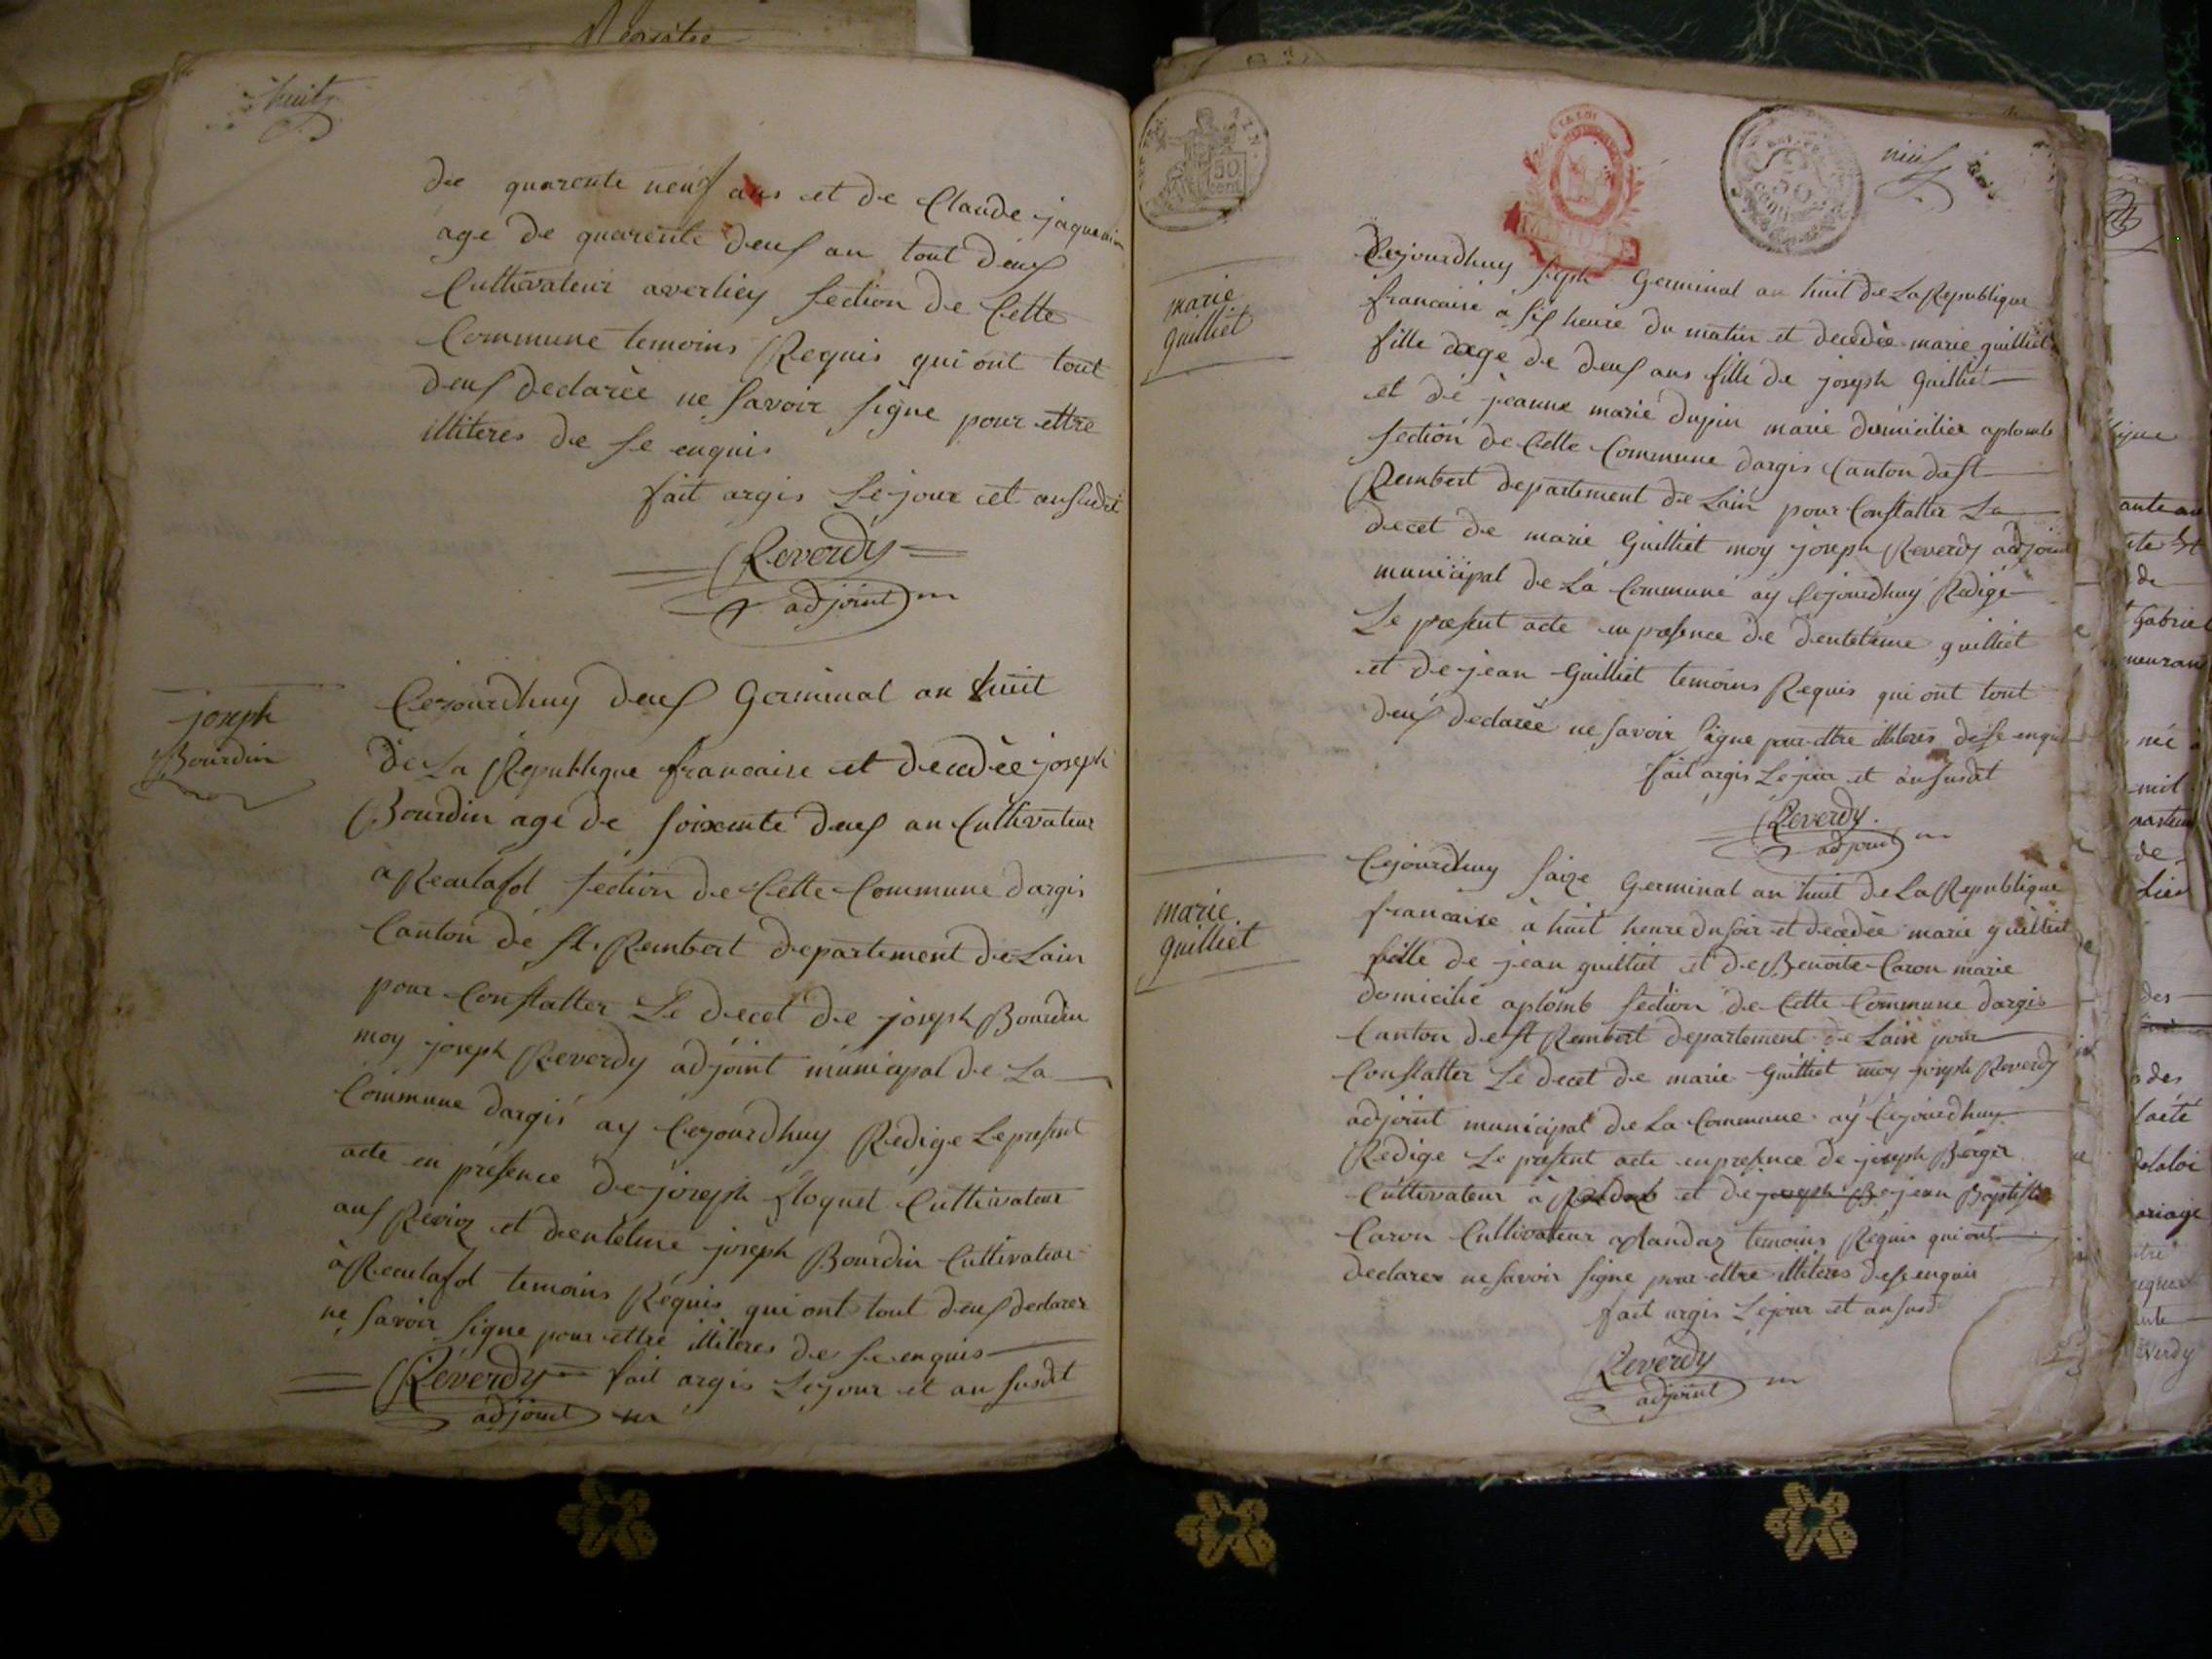 huit
de quarente neuf ans et de Claude jaquemin
age de quarente deux an tout deux
Cultivateur averliey section de Cette
Commune temoins Requis qui ont tout
deux declarée ne savoir signe pour ettre
illiteres de se enquis
fait argis Le jour et an susdit
Reverdy
adjoint
joseph
Bourdin
Cejourdhuy deux Germinal an huit
de La Republique francaise et decedée joseph
Bourdin age de soixente deux an Cultivateur
à Reculafol section de Cette Commune dargis
Canton de st. Rembert departement de Lain
pour Constatter Le decet de joseph Bourdin
moy joseph Reverdy adjoint municipal de La
Commune dargis ay Cejourdhuy Redige Le present
acte en présence de joseph floquet Cultivateur
aux et dentelme joseph Bourdin Cultivateur
à Reculafol temoins Requis qui ont tout deux declarer
ne savoir signe pour ettre illiteres de se enquis
Reverdy fait argis Le jour et an susdit
adjoint
neuf
50
marie
guilliet
Cejourdhuy Germinal an huit de La Republique
francaise a six heure du matin et decedée marie guilliet
fille dage de deux ans fille de joseph Guilliet
et de jeanne marie dupin marie domicilie aplomb
section de Cette Commune dargis Canton de st
Rembert departement de Lain pour Constatter Le
decet de marie Guilliet moy joseph Reverdy adjoint
municipal de La Commune ay Cejourdhuy Redigé
Le present acte en presence de dentelme guilliet
et de jean Guilliet temoins Requis qui ont tout
deux declarée ne savoir signe pour ettre illiteres de se enquis
fait argis Le jour et an susdit
Reverdy
adjoint
marie
guilliet
Cejourdhuy saize Germinal an huit de La Republique
francaise à huit heure du soir et decedée marie guilliet
fille de jean guilliet et de Benoite Caron marie
domicilié aplomb section de Cette Commune dargis
Canton de st Rembert departement de Lain pour
Constatter Le decet de marie Guilliet moy joseph Reverdy
adjoint municipal de La Commune ay Cejourdhuy
Redige Le present acte en presence de joseph Berger
Cultivateur à et de joseph B jean Baptiste
Caron Cultivateur temoins Requis qui ont
declarer ne savoir signe pour ettre illiteres de se enquis
fait argis Le jour et an susd
Reverdy
adjoint